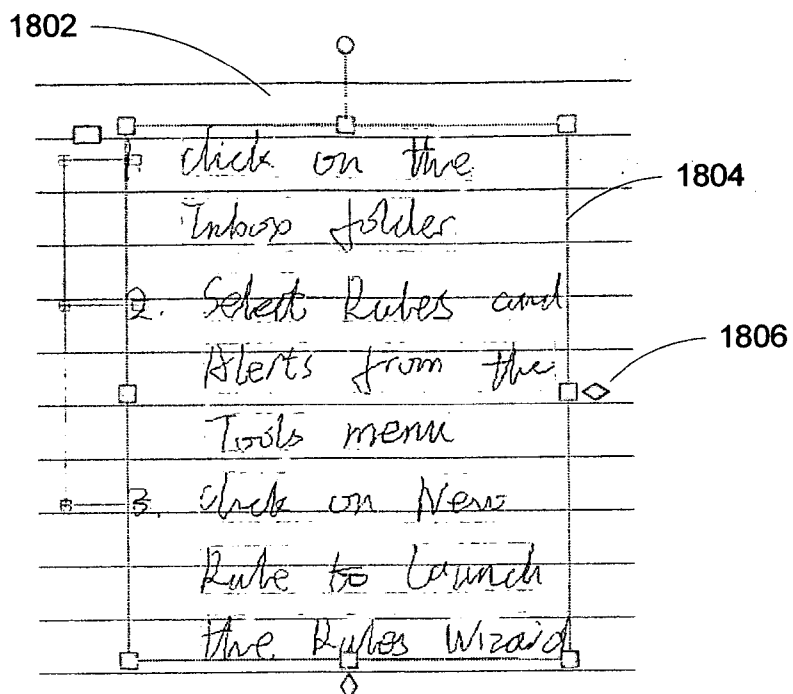 1802
1. click on the
1804
Inbox folder
2. Select Rules and
1806
Alerts from the
Tools menu
3. click on New
Rule to Launch
the Rules Wizard